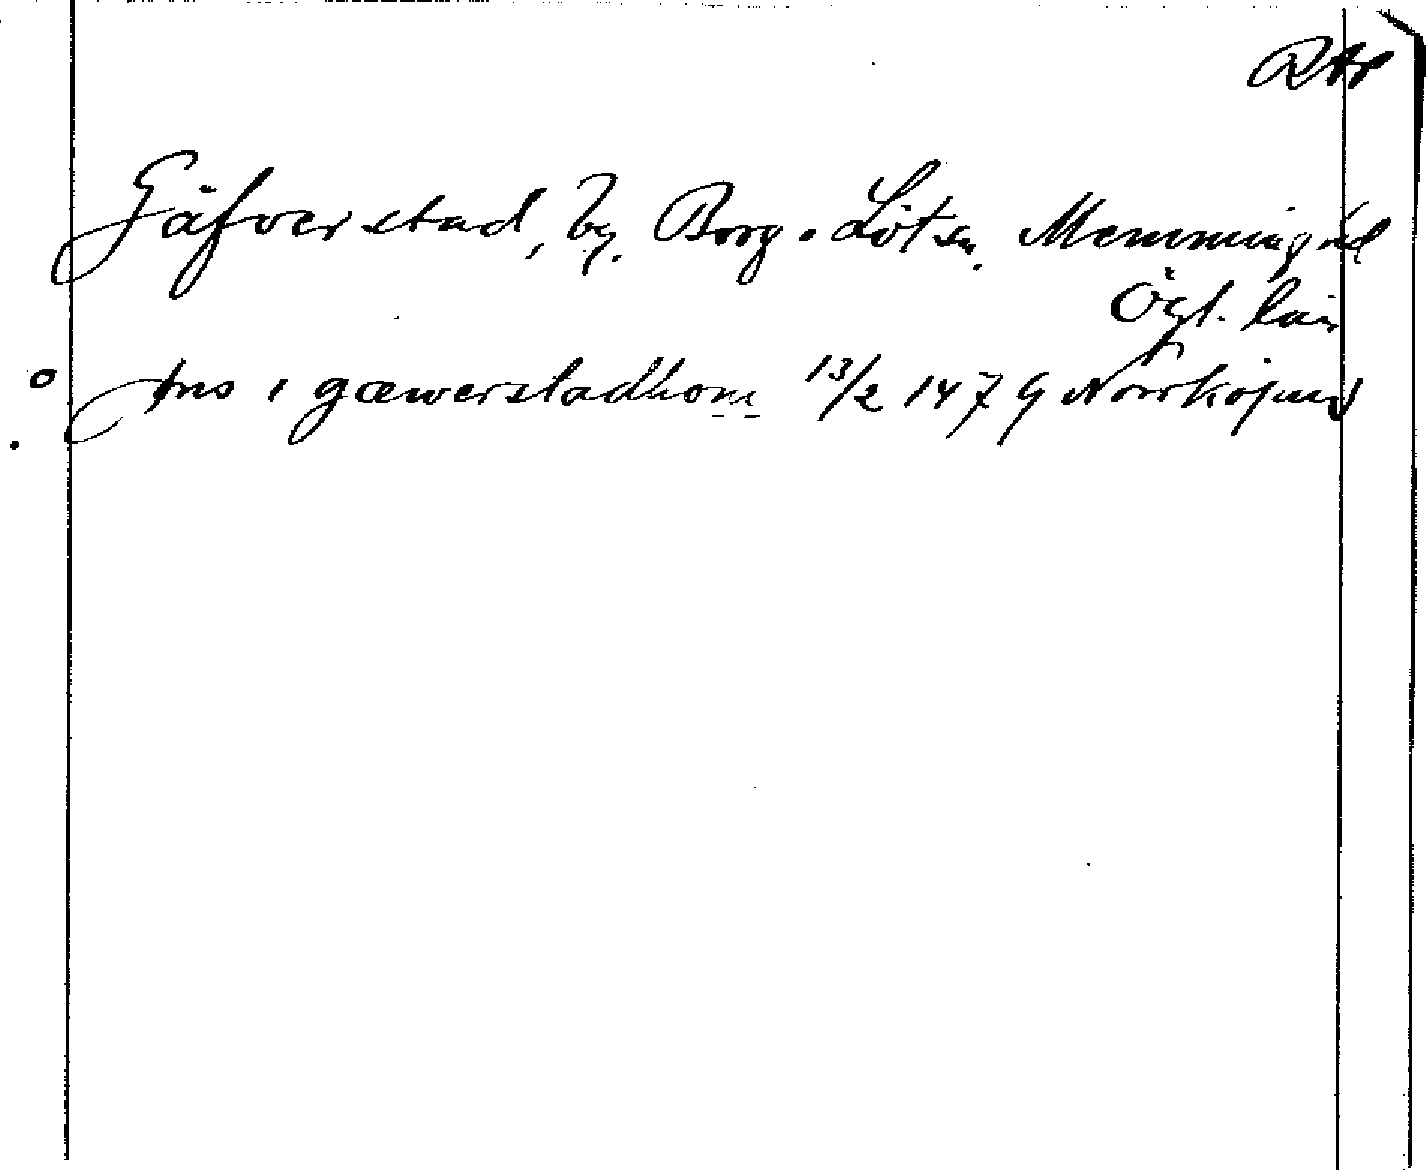 RAP
Gäfverstad, by. Borg o. Löt sn. Memmings hd
Ögl. län
Jns i gæwerstadhom 13/2 1479 Norrköping